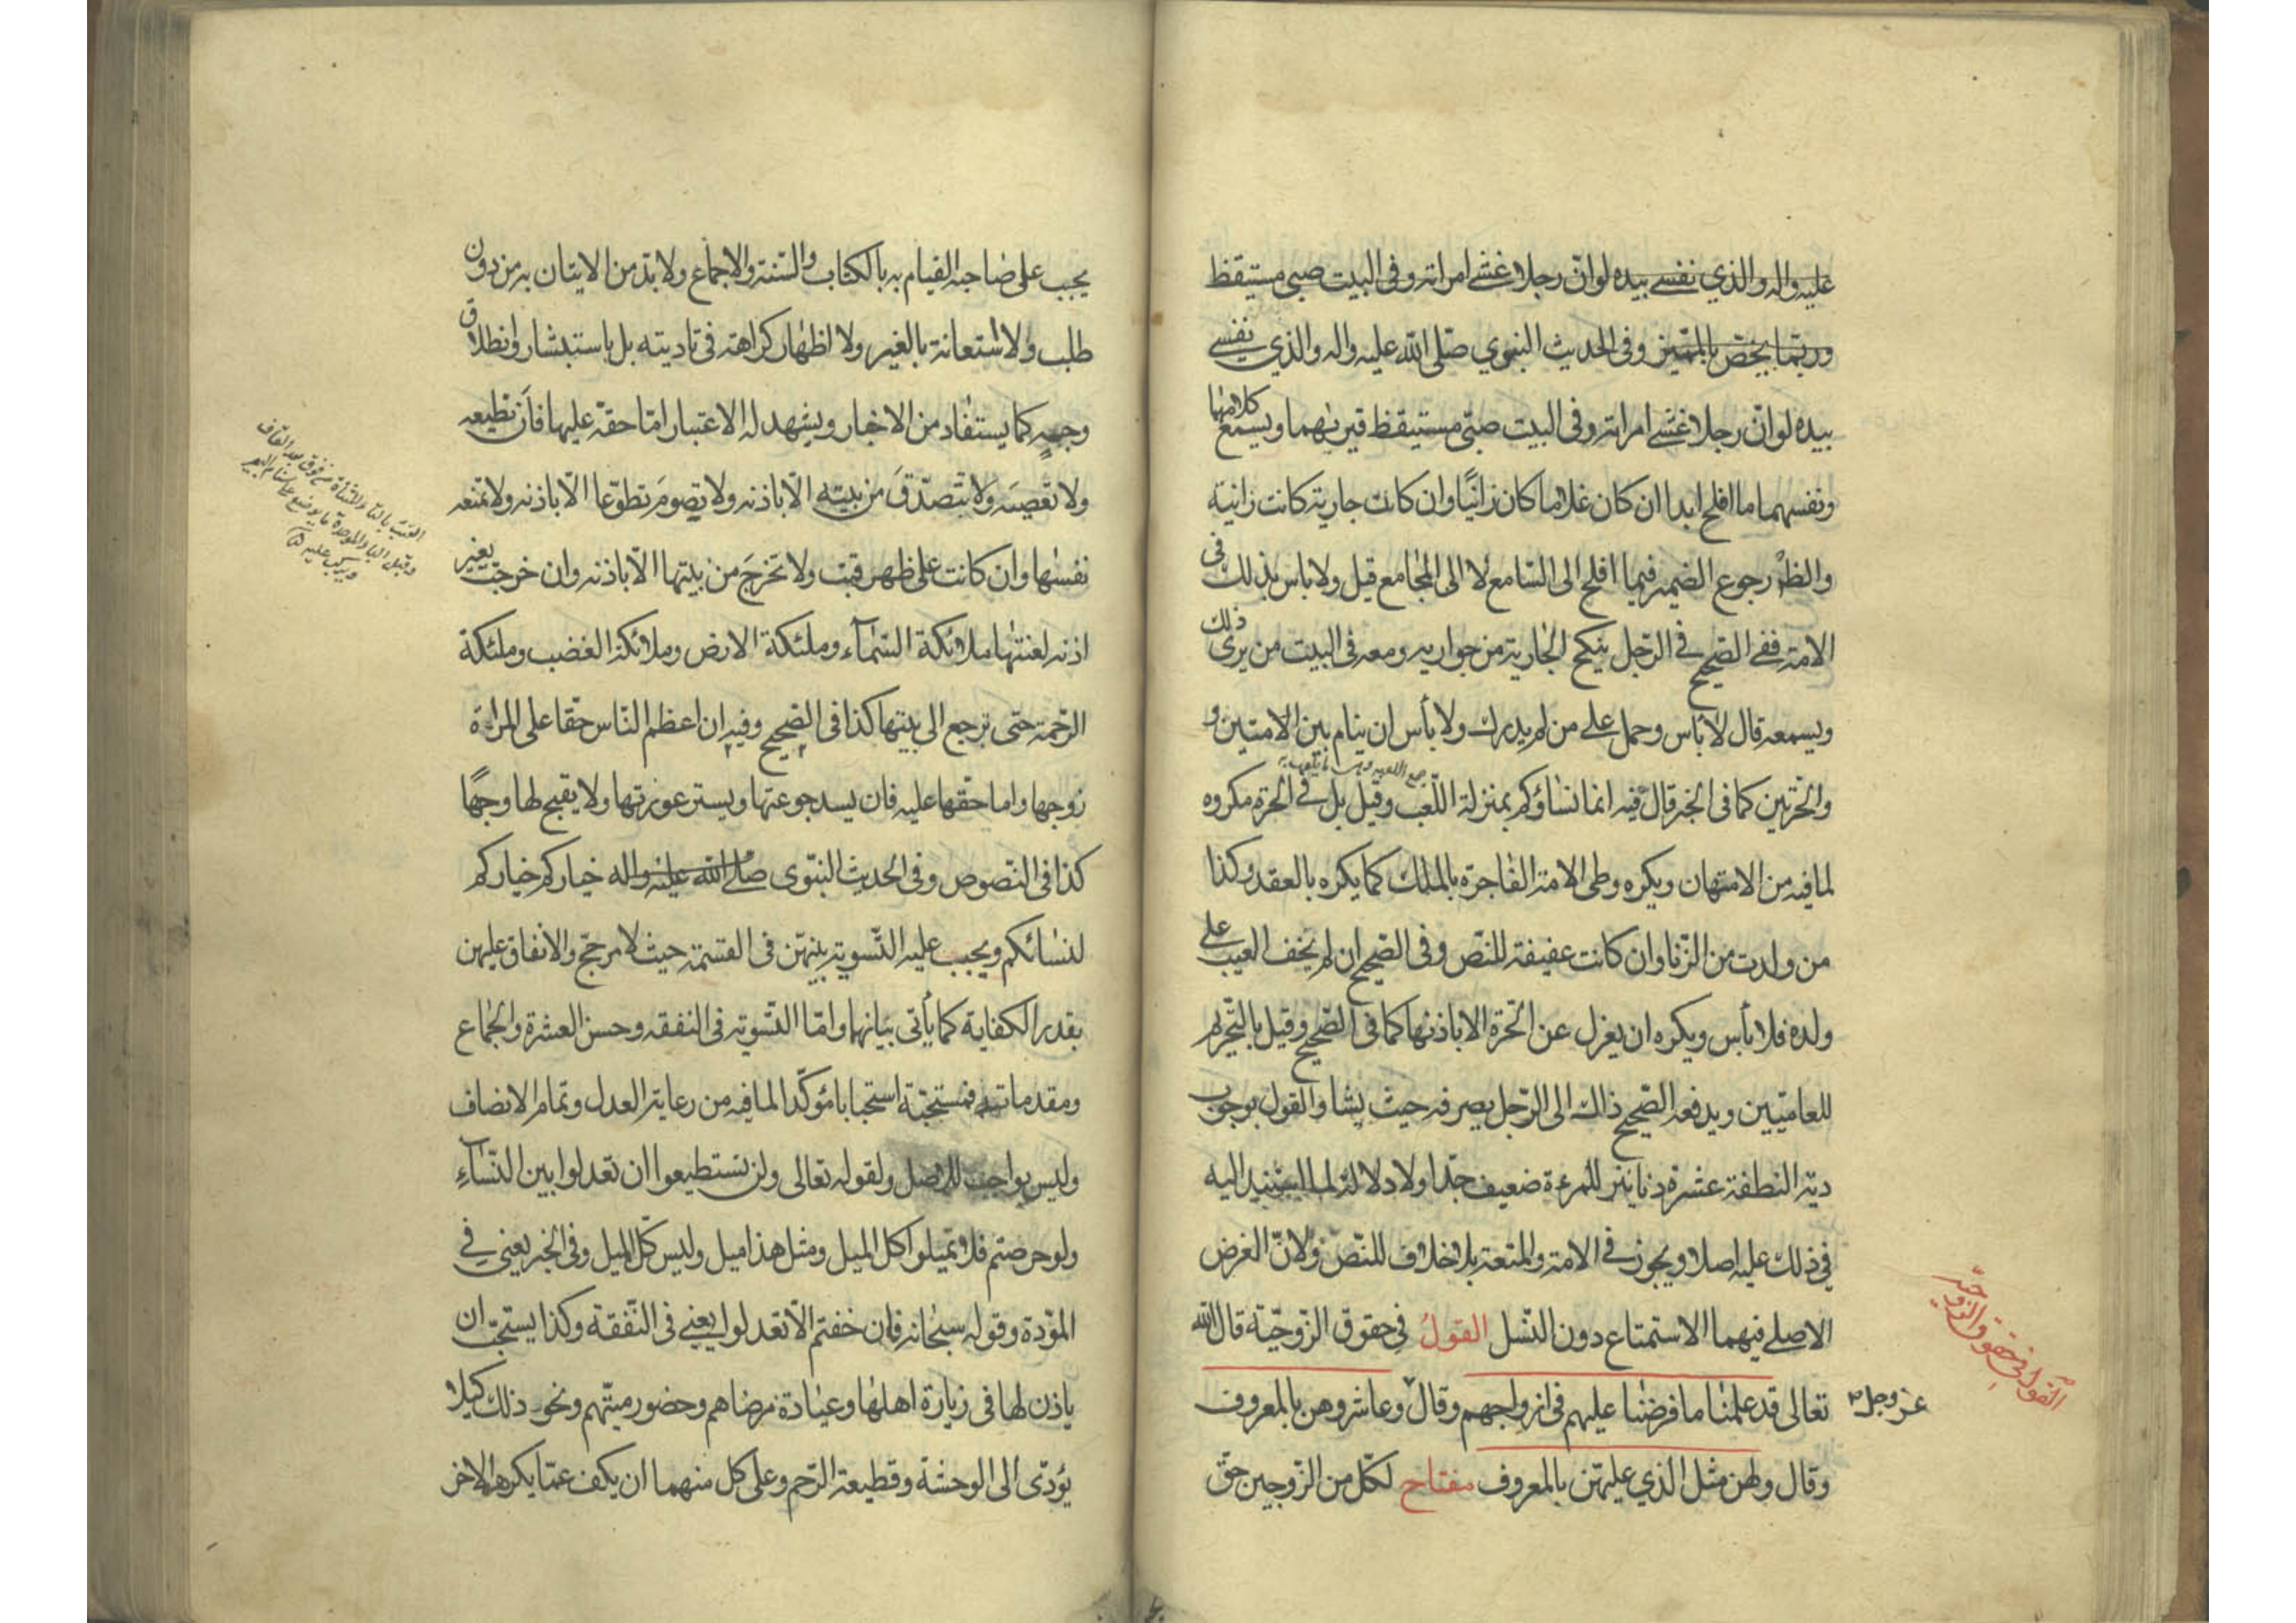 عليه واله والذي نفسي بيده لو انّ رجلا غشى امراته وفى البيت صبى مستيقظ
وربّما يخصّ بالمميّز وفى الحديث النبوي صلّى الله عليه واله والذي نفسي
بيده لو انّ رجلا غشى امراته وفى البيت صبّى مستيقظ قيريهما ويسمع كلامهما
ونفسهما ما افلح ابدا ان كان غلاما كان زانيًا وان كانت جارية كانت زانية
والظّ رجوع الضمير فيما افلح الى السّامع لا الى المجامع قيل ولا باس بذلك فى
الامة ففى الصّحيح فى الرّجل ينكح الجارية من جواريه ومعه فى البيت من يرى ذلك
ويسمعه قال لا باس وحمل على من لم يدرك ولا بأس ان ينام بين الامتين و
والحرّتين كما فى الخبر قال فيه انما نساؤكم بمنزلة اللّعب وقيل بل فى الحرّة مكروه
جمع اللعبه وهى ما يلعب به
لما فيه من الامتهان ويكره وطى الامة الفاجرة بالملك كما يكره بالعقد وكذا
من ولدت من الزّنا وان كانت عفيفة للنّص وفى الصّحيح ان لم يخف العيب على
ولده فلا بأس ويكره ان يعزل عن الحرّة الا باذنها كما فى الصّحيح وقيل بالتّحريم
للعاميّين ويدفعه الصّحيح ذاك الى الرّجل يصرفه حيث يشا والقول بوجوب
ديّة النطفة عشرة دنانير للمرءة ضعيف جدّا ولا دلالة لما استند اليه
فى ذلك عليه اصلا ويجوز فى الامة والمتعة بلا خلاف للنّص ولانّ الغرض
الاصلى فيهما الاستمتاع دون النّسل القولُ فى حقوق الزّوجيّة قال الله
تعالى قد علمنا ما فرضنا عليهم فى ازواجهم وقال وعاشروهن بالمعروف
وقال ولهن مثل الّذي عليهنّ بالمعروف مفتاح لكلّ من الزّوجين حقّ
القول فى حقوق الزوجيّة
عز وجل
يجب على صاحبه القيام به بالكتاب والسّنة والاجماع ولا بدّ من الايتان به من دون
طلب ولا استعانة بالغير ولا اظهار كراهة فى تاديته بل باستبشار وانطلاق
وجه كما يستفاد من الاخبار ويشهد له الاعتبار امّا حقّه عليها فان تطيعه
ولا تعصيه ولا تتصدّق من بيته الّا باذنه ولا تصوم تطوّعا الّا باذنه ولا تمنعه
نفسها وان كانت على ظهر قتب ولا تخرج من بيتها الّا باذنه وان خرجت بغير
اذنه لعنتها ملائكة السّماء وملئكة الارض وملائكة الغضب وملئكة
الرّحمة حتى ترجع الى بيتها كذا فى الصّحيح وفيه ان اعظم النّاس حقّا على المراة
زوجها واما حقّها عليه فان يسد جوعتها ويستر عورتها ولا يقبح لها وجهًا
كذا فى النّصوص وفى الحديث النبّوى صلى الله عليه واله خياركم خياركم
لنسائكم ويجب عليه التّسوية بينهنّ فى القسمة حيث لا مرجّح والانفاق عليهن
بقدر الكفاية كما يأتى بيانهما وامّا التّسوية فى النفقه وحسن العشرة والجماع
ومقدماته فمستحبّة استحبابا مؤكّدا لما فيه من رعاية العدل وتمام الانصاف
وليس بواجب للاصل ولقوله تعالى ولن تستطيعوا ان تعدلوا بين النّسآء
ولو حرصتم فلا تميلوا كل الميل ومثل هذا ميل وليس كلّ الميل وفى الخبر يعنى فى
المودّة وقوله سبحانه فان خفتم الّا تعدلوا يعنى فى النّفقة وكذا يستحبّ ان
ياذن لها فى زيارة اهلها وعيادة مرضاهم وحضور ميّتهم ونحو ذلك كيلا
يؤدّى الى الوحشة وقطيعة الرّحم وعلى كل منهما ان يكف عمّا يكرهه الاخر
القتب بالتاء المثناة من فوق بعد القاف
وقبل الباء الموحدة ما يوضع على سنام البعير
ويركب عليه